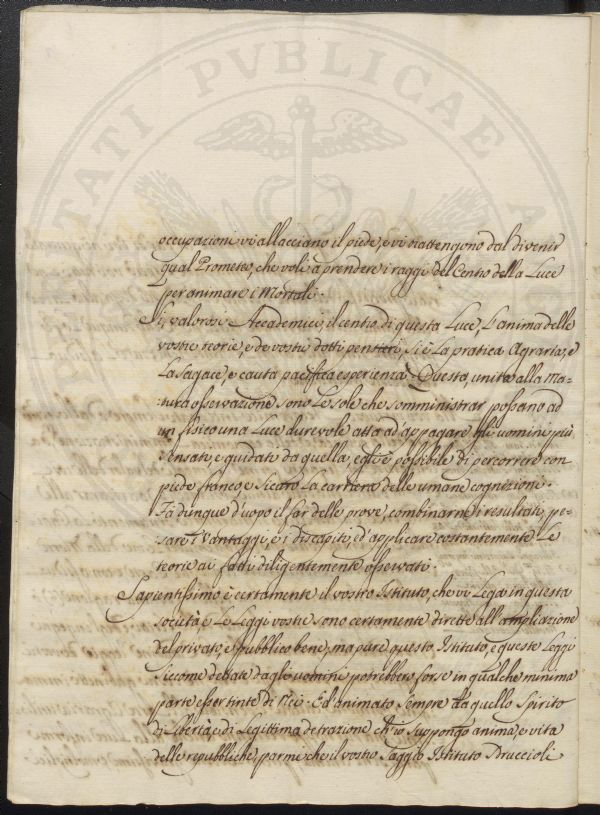 PVBLICAE
occupazioni vi allacciano il piede, e vi rattengono dal divenir
qual Prometeo, che volò a prendere i raggi del Centro della Luce
per animare i Mortali.
Si, valorosi Accademici, il centro di questa Luce, L'anima delle
vostre teorie, e de vostri dotti pensieri, si è La pratica Agraria, e
La sagace, e cauta pacifica esperienza. Questa, unita alla Ma=
:tura osservazione sono Le sole che somministrar possano ad
un fisico una Luce durevole atta ad appagare gli uomini più
sensati, e guidate da quella, egli è possibile di percorrere con
piede franco, e sicuro La carriera delle umane cognizioni.
Fà dunque d'uopo il far delle prove, combinarne i resultati, pe=
sare i vantaggi, e i discapiti, ed applicare costantemente Le
teorie ai fatti diligentemente osservati.
Sapientissimo è certamente il vostro Istituto, che vi Lega in questa
società e Le Leggi vostre sono certamente dirette all'ampliazione
del privato, e pubblico bene, ma pure questo Istituto, e queste Leggi
siccome dettate dagli uomini potrebbero forse in qualche minima
parte esser tinte di Nei. Ed animato sempre da quello Spirito
di Libertà, e di Legittima detrazione ch'io suppongo anima, e vita
delle repubbliche, parmi che il vostro saggio Istituto sdruccioli